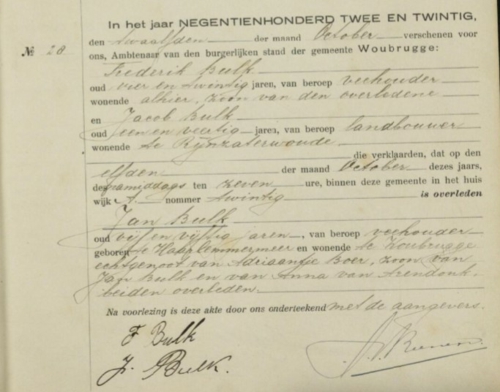 In het jaar NEGENTIENHONDERD TWEE EN TWINTIG,
№ 28 den twaalfden der maand October verschenen voor
ons, Ambtenaar van den burgerlijken stand der gemeente Woubrugge:
Frederik Bulk
oud vier en twintig jaren, van beroep veehouder
wonende alhier, zoon van den overledene
en Jacob Bulk
oud een en veertig jaren, van beroep landbouwer
wonende te Rijnzaterwoude
die verklaarden, dat op den
elfden der maand October dezes jaars,
des namiddags ten zeven ure, binnen deze gemeente in het huis
wijk nommer twintig is overleden
Jan Bulk
oud vijf en vijftig jaren, van beroep veehouder
geboren te Haarlemmermeer en wonende te Woubrugge
echtgenoot van Adriaantje Boer, zoon van
Jan Bulk en van Anna van Arendonk
beiden overleden.
Na voorlezing is deze akte door ons onderteekend met de aangevers.
F Bulk
J. Bulk.